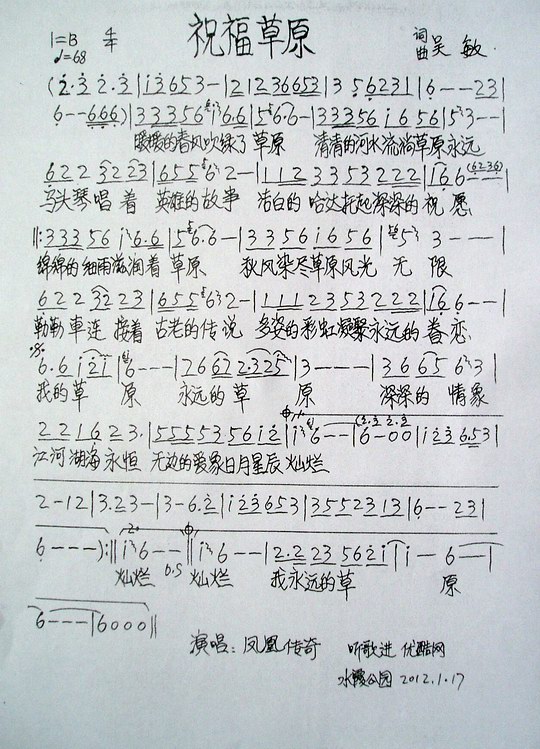 祝福草原
1=B 4/4
♩=68
词曲 吴敏
(2·3 2·3|i3653-|2 1236653|3 56231|6--23|
6--666)|33356 i6·6|56·6-|33356 i656|53--|
暖暖的春风吹绿了草原 清清的河水流淌草原永远
622 3223|655 62-|112 335 3222|166(6236)|
马头琴唱着 英雄的故事 洁白的哈达托起深深的祝愿
‖:33356 i6·6|56·6-|33561656|5 3---|
绵绵的细雨滋润着草原 秋风染尽草原风光无限
622 3223|655 62-|1112353222|166--|
勒勒车连接着古老的传说 多姿的彩虹凝聚永远的眷恋
6·6 i2i|6---|26 62 2·325|3---|36 65 63|
我的草原 永远的草原 深深的情象
221623·|5555356i2|i6--|6-00|i23653|
江河湖海永恒 无边的爱象日月星辰灿烂
2-12|3·23-|3-6·2|i23653|35523 13|6--23|
6---):‖i6--‖i6--|2·2 23 562i|i-6-|
灿烂 D.S 灿烂 我永远的草原
6---|6000‖
演唱:凤凰传奇 听歌进优酷网
水霞公园 2012.1.17